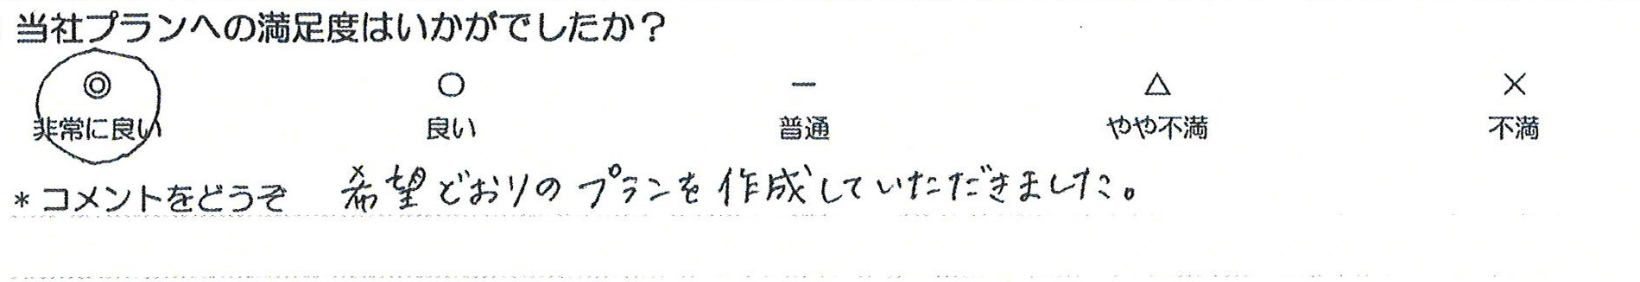 当社プランへの満足度はいかがでしたか？
◎ ○ － △ ×
非常に良い 良い 普通 やや不満 不満
＊コメントをどうぞ 希望どおりのプランを作成していただきました。